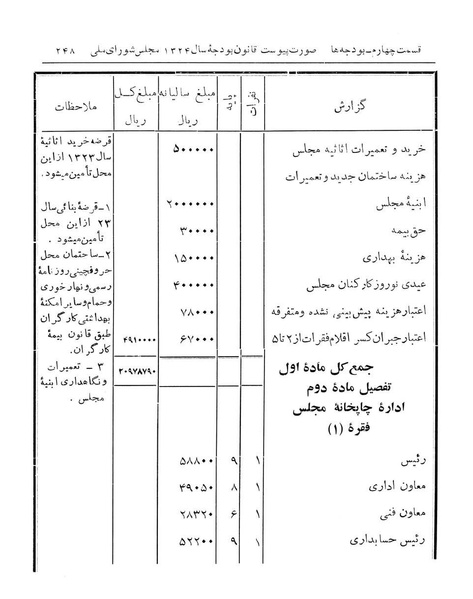 قسمت چهارم ـ بودجه‌ها صورت پیوست قانون بودجهٔ سال ۱۳۲۴ مجلس شورای ملی ۲۴۸
گزارش نفرات پایه مبلغ سالیانه ریال مبلغ کل ریال ملاحظات
خرید و تعمیرات اثاثیه مجلس ۵۰۰۰۰۰
هزینه ساختمان جدید و تعمیرات
ابنیهٔ مجلس ۲۰۰۰۰۰۰
حق بیمه ۳۰۰۰۰
هزینهٔ بهداری ۱۵۰۰۰۰
عیدی نوروز کارکنان مجلس ۴۰۰۰۰۰
اعتبار هزینه پیش بینی نشده و متفرقه ۷۸۰۰۰
اعتبار جبران کسر اقلام فقرات از ۲ تا ۵ ۶۷۰۰۰ ۴۹۱۰۰۰۰
جمع کل مادهٔ اول ۲۰۹۷۸۷۹۰
تفصیل مادهٔ دوم
ادارهٔ چاپخانهٔ مجلس
فقرهٔ (۱)
رئیس ۱ ۹ ۵۸۸۰۰
معاون اداری ۱ ۸ ۴۹۰۵۰
معاون فنی ۱ ۶ ۲۸۳۲۰
رئیس حسابداری ۱ ۹ ۵۲۲۰۰
قرضه خرید اثاثیهٔ
سال ۱۳۲۳ از این
محل تأمین میشود.
۱ـ قرضهٔ بنائی سال
۲۳ از این محل
تأمین میشود .
۲ـ ساختمان محل
حروفچینی روزنامهٔ
رسمی و نهارخوری
و حمام و سایر امکنهٔ
بهداشتی کارگران
طبق قانون بیمهٔ
کارگران.
۳ ـ تعمیرات
و نگاهداری ابنیهٔ
مجلس .